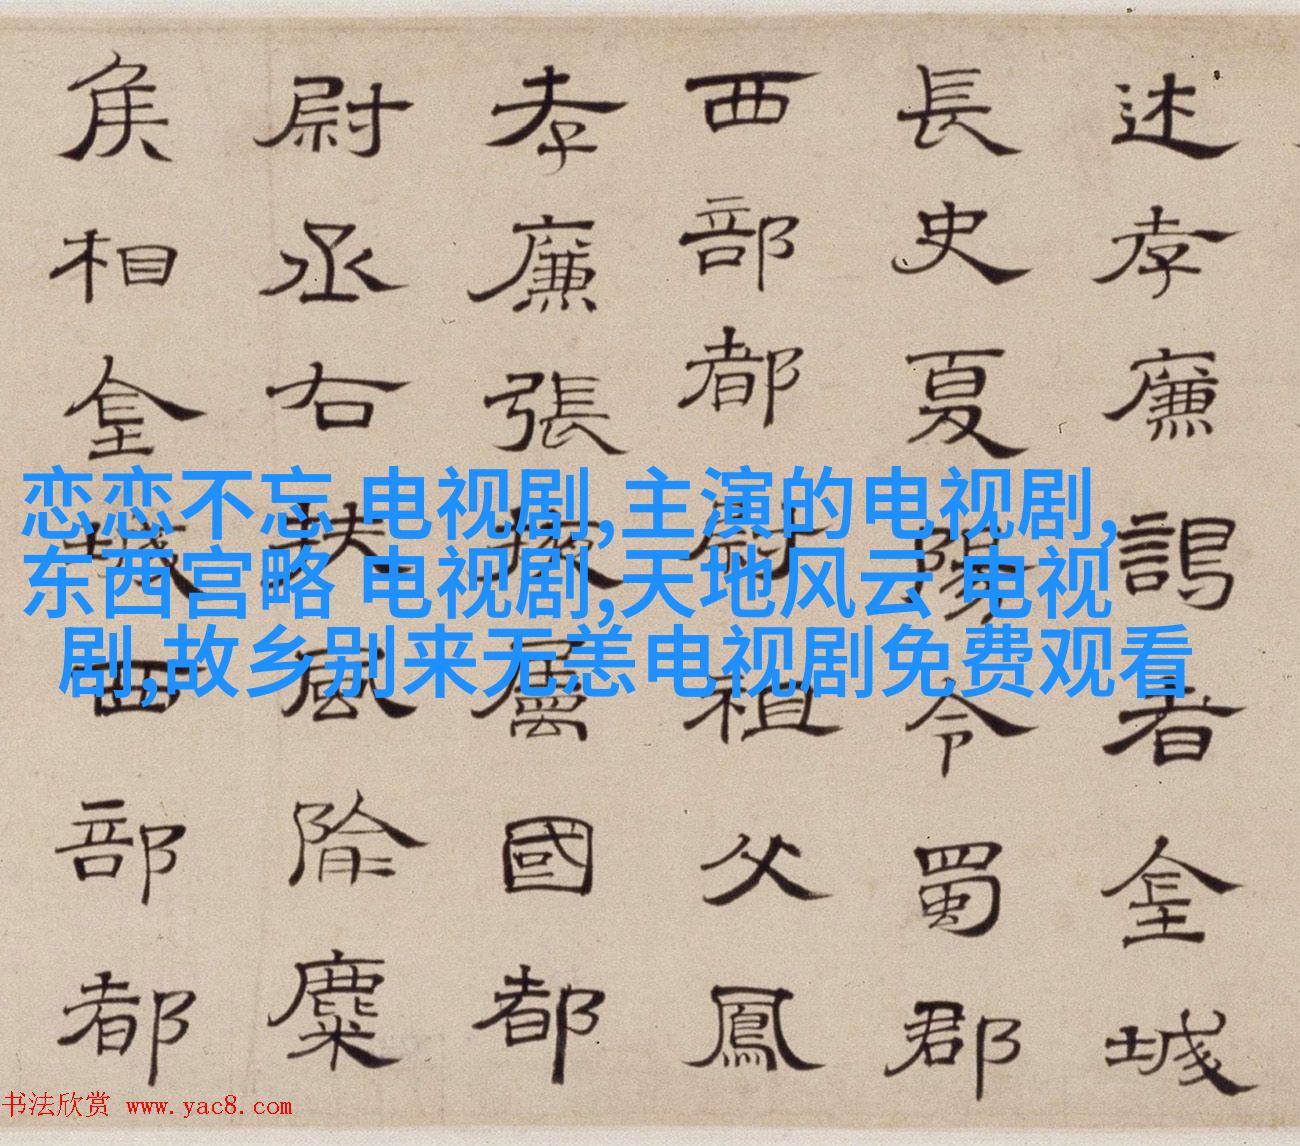 述孝廉謁者金城
長史夏陽令蜀郡
西部都尉祖父鳳
孝廉張掖屬國都
尉丞右扶風隃麋
侯相金城西部都
恋恋不忘 电视剧,主演的电视剧,
东西宫略 电视剧,天地风云 电视
剧,故乡别来无恙电视剧免费观看
书法欣赏 www.yac8.com